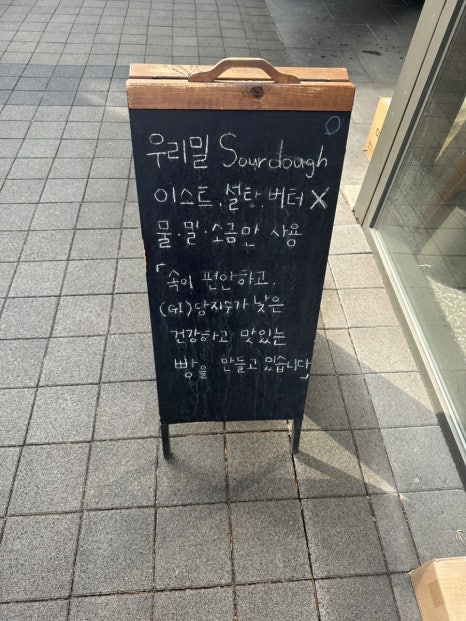 우리밀 Sourdough
이스트.설탕.버터 X
물.밀.소금만 사용
「속이 편안하고.
(GI)당지수가 낮은
건강하고 맛있는
빵을 만들고 있습니다